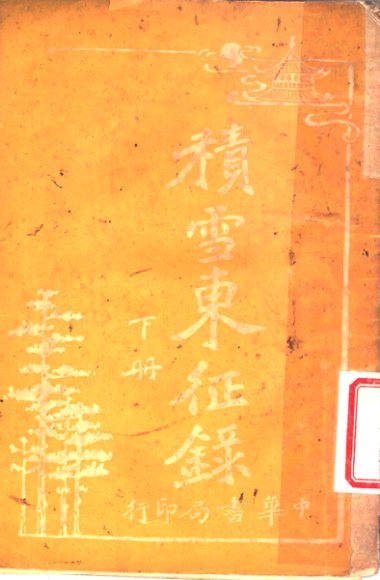 積雪東征錄
下册
中華書局印行